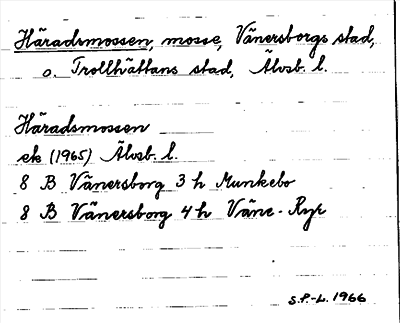 Häradsmossen, mosse, Vänersborgs stad,
o. Trollhättans stad, Älvsb. l.
Häradsmossen
ek (1965) Älvsb. l.
8 B Vänersborg 3 h Munkebo
8 B Vänersborg 4 h Väne-Ryr
S.P.-L. 1966